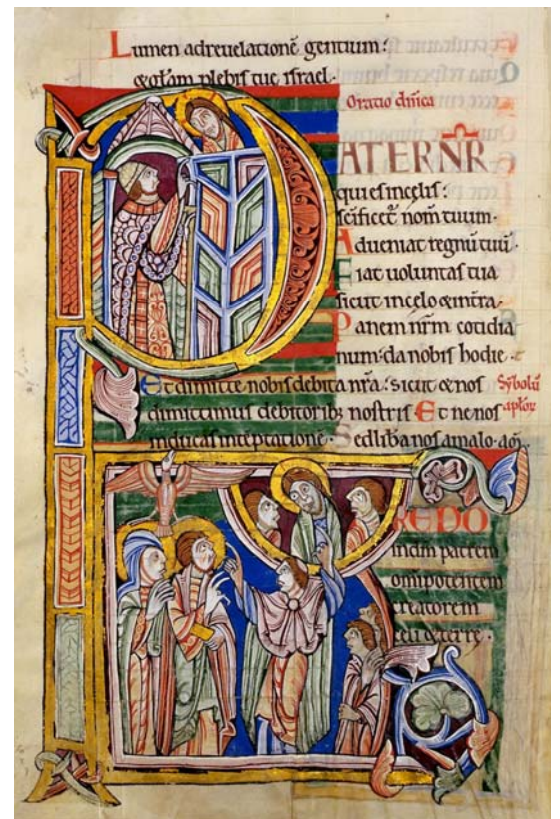 Lumen adreuelationē gentium:
&głam plebis tue israel.
Oratio dn̄ica
PATERN̄R
qui es incelis:
sc̄ificet᷑ nom̄ tuum.
Adueniat regnū tuū.
Fiat uoluntas tua
sicut incelo &intra.
Panem nr̄m cotidia
num: da nobis hodie.
Et dimitte nobis debita nr̄a: sicut & nos
Sȳbolū
dimittimus debitorib; nostris Et ne nos
aplōr
inducas inteptatione. Sed lib̄a nos amalo. am̄.
CREDO
indm̄ patrem
omipotentem
creatorem
celi & terre.